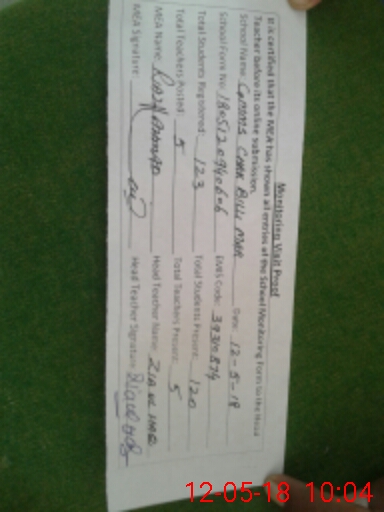 Monitoring Visit Proof
It is certified that the MEA has shown all entries of the School Monitoring Form to the Head
Teacher before its online submission.
School Name: CHAK BILLI MAR Date: 12-5-18
School Form No: EMIS Code:
Total Students Registered: 123 Total Students Present: 120
Total Teachers Posted: 5 Total Teachers Present: 5
MEA Name: Head Teacher Name: ZIA UL HAQ
MEA Signature: Head Teacher Signature:
12-05-18 10:04